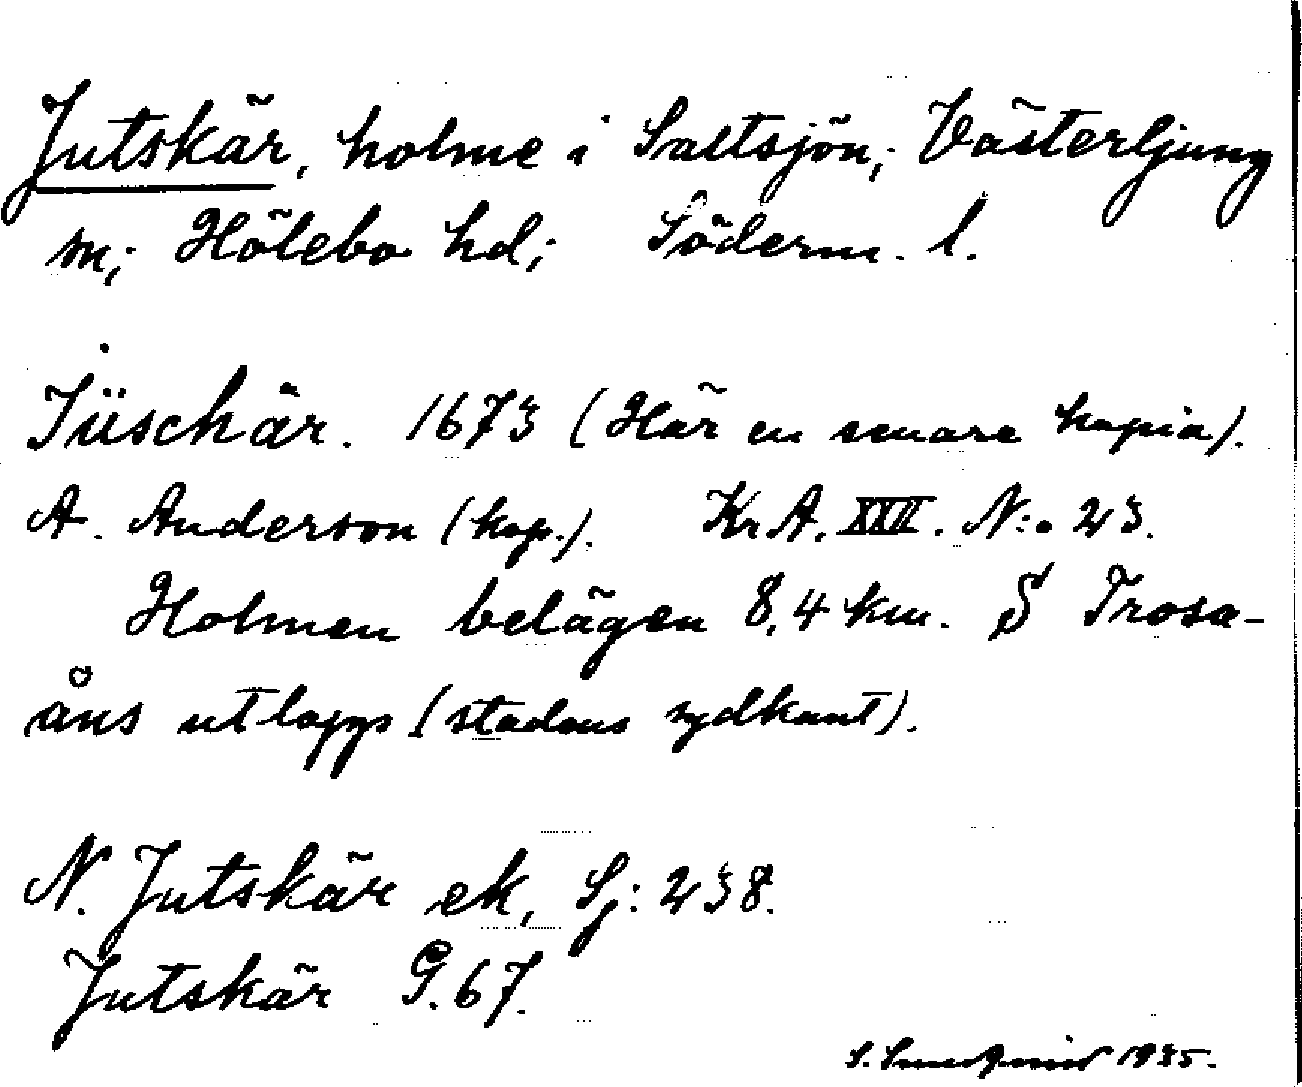 Jutskär, holme i Saltsjön; Västerljung
sn; Hölebo hd; Söderm. l.
Jüschär. 1673 (Här en senare kopia).
A. Anderson (kop.). Kr A. XXII. N:o 23.
Holmen belägen 8,4 km. S Trosa-
åns utlopps (stadens sydkant).
N. Jutskär ek, Sj: 238.
Jutskär G. 67.
S. 1935.